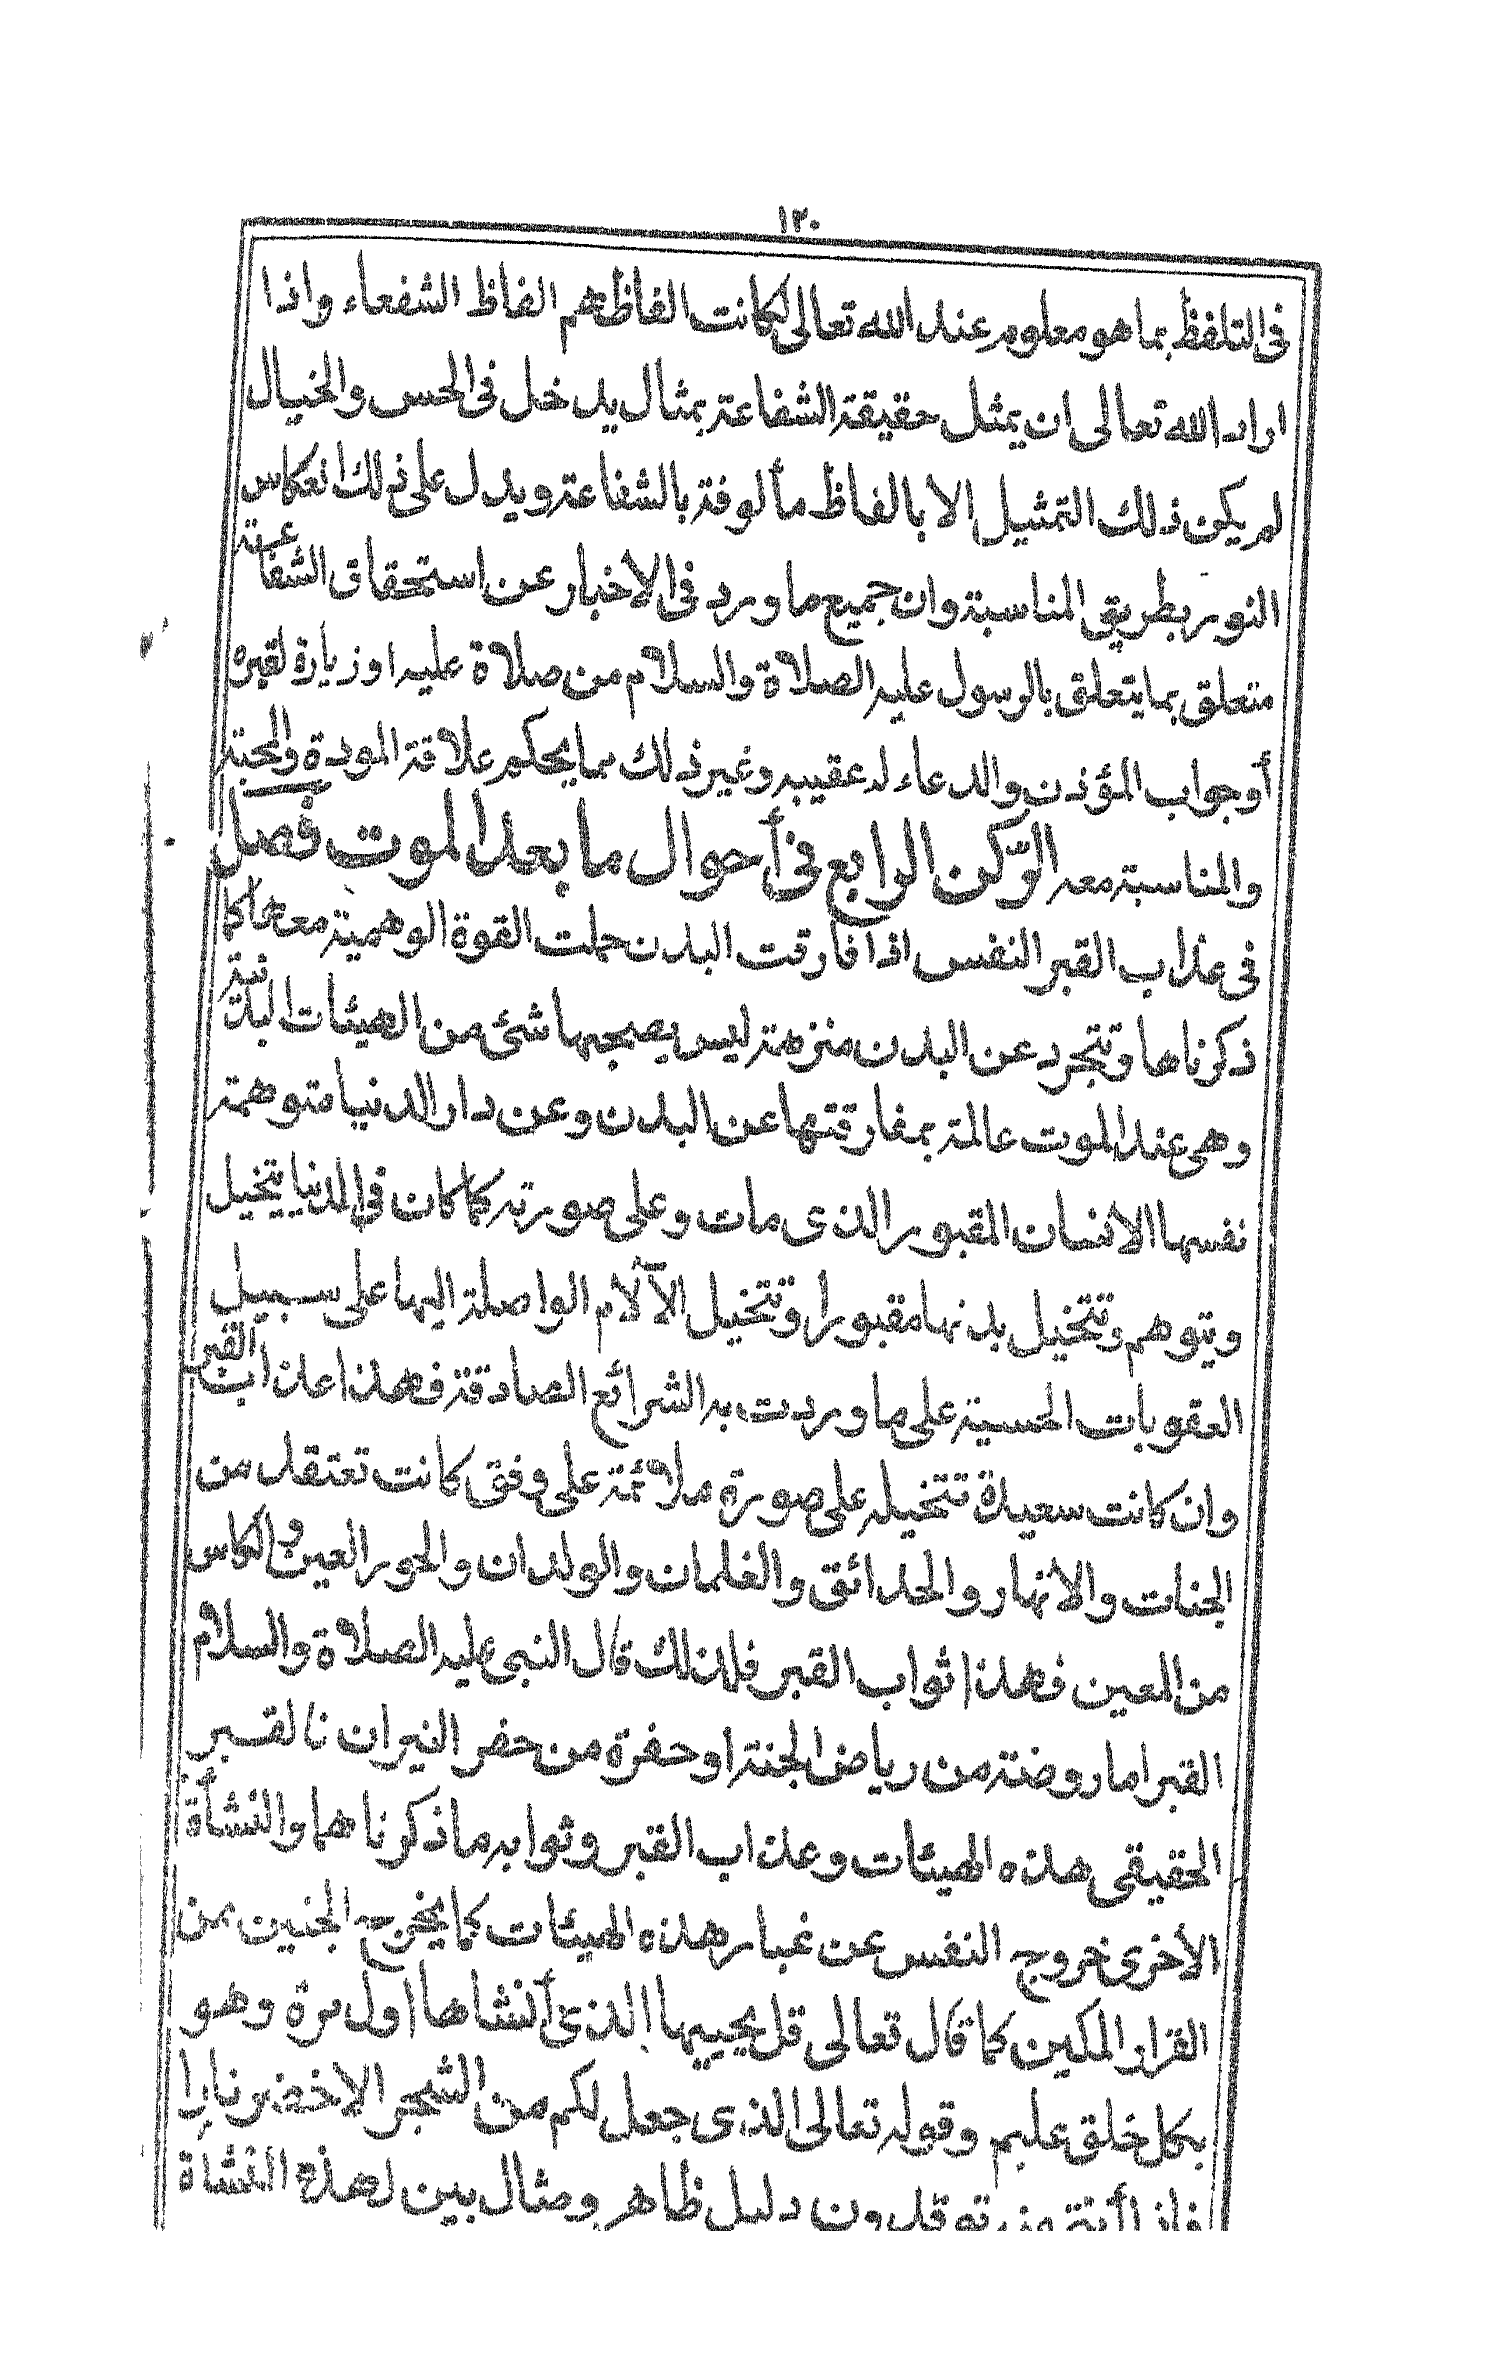 ١٣٠
فى التلفظ بما هو معلوم عند الله تعالى لكانت الفاظهم الفاظ الشفعاء واذا
اراد الله تعالى ان يمثل حقيقة الشفاعة بمثال يدخل فى الحس والخيال
لم يكن ذلك التمثيل الا بالفاظ مألوفة بالشفاعة ويدل على ذلك انعكاس
النور بطريق المناسبة وان جميع ما ورد فى الاخبار عن استحقاق الشفاعة
متعلق بما يتعلق بالرسول عليه الصلاة والسلام من صلاة عليه او زيارة لقبره
أو جواب المؤذن والدعاء له عقيبه وغير ذلك مما يحكم علاقة المودة والمحبة
والمناسبة معه الركن الرابع فى أحوال ما بعد الموت فصل
فى عذاب القبر النفس اذا فارقت البدن حملت القوة الوهمية معها كما
ذكرناها وتتجرد عن البدن منزهة ليس يصحبها شئ من الهيئات البدنية
وهى عند الموت عالمة بمفارقتها عن البدن وعن دار الدنيا متوهمة
نفسها الانسان المقبور الذى مات وعلى صورته كما كان فى الدنيا يتخيل
ويتوهم وتتخيل بدنها مقبورا وتتخيل الآلام الواصلة اليها على سبيل
العقوبات الحسية على ما وردت به الشرائع الصادقة فهذا عذاب القبر
وان كانت سعيدة تتخيله على صورة ملائمة على وفق كانت تعتقد من
الجنات والانهار والحدائق والغلمان والولدان والحور العين والكاس
من المعين فهذا ثواب القبر فلذلك قال النبى عليه الصلاة والسلام
القبر اما روضة من رياض الجنة او حفرة من حفر النيران فالقبر
الحقيقى هذه الهيئات وعذاب القبر وثوابه ما ذكرناهما والنشأة
الأخرى خروج النفس عن غبار هذه الهيئات كما يخرج الجنين من
القرار المكين كما قال تعالى قل يحييها الذى أنشاها اول مرة وهو
بكل خلق عليم وقوله تعالى الذى جعل لكم من الشجر الاخضر نارا
فاذا أنتم منه توقدون دليل ظاهر ومثال بين لهذه النشاة